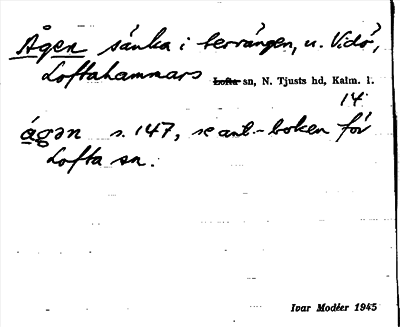 Ågen sänka i terrängen, u. Vidö,
Loftahammars Lofta sn, N. Tjusts hd, Kalm. l.
14
ågən s. 147, se ant.-boken för
Lofta sn.
Ivar Modéer 1945